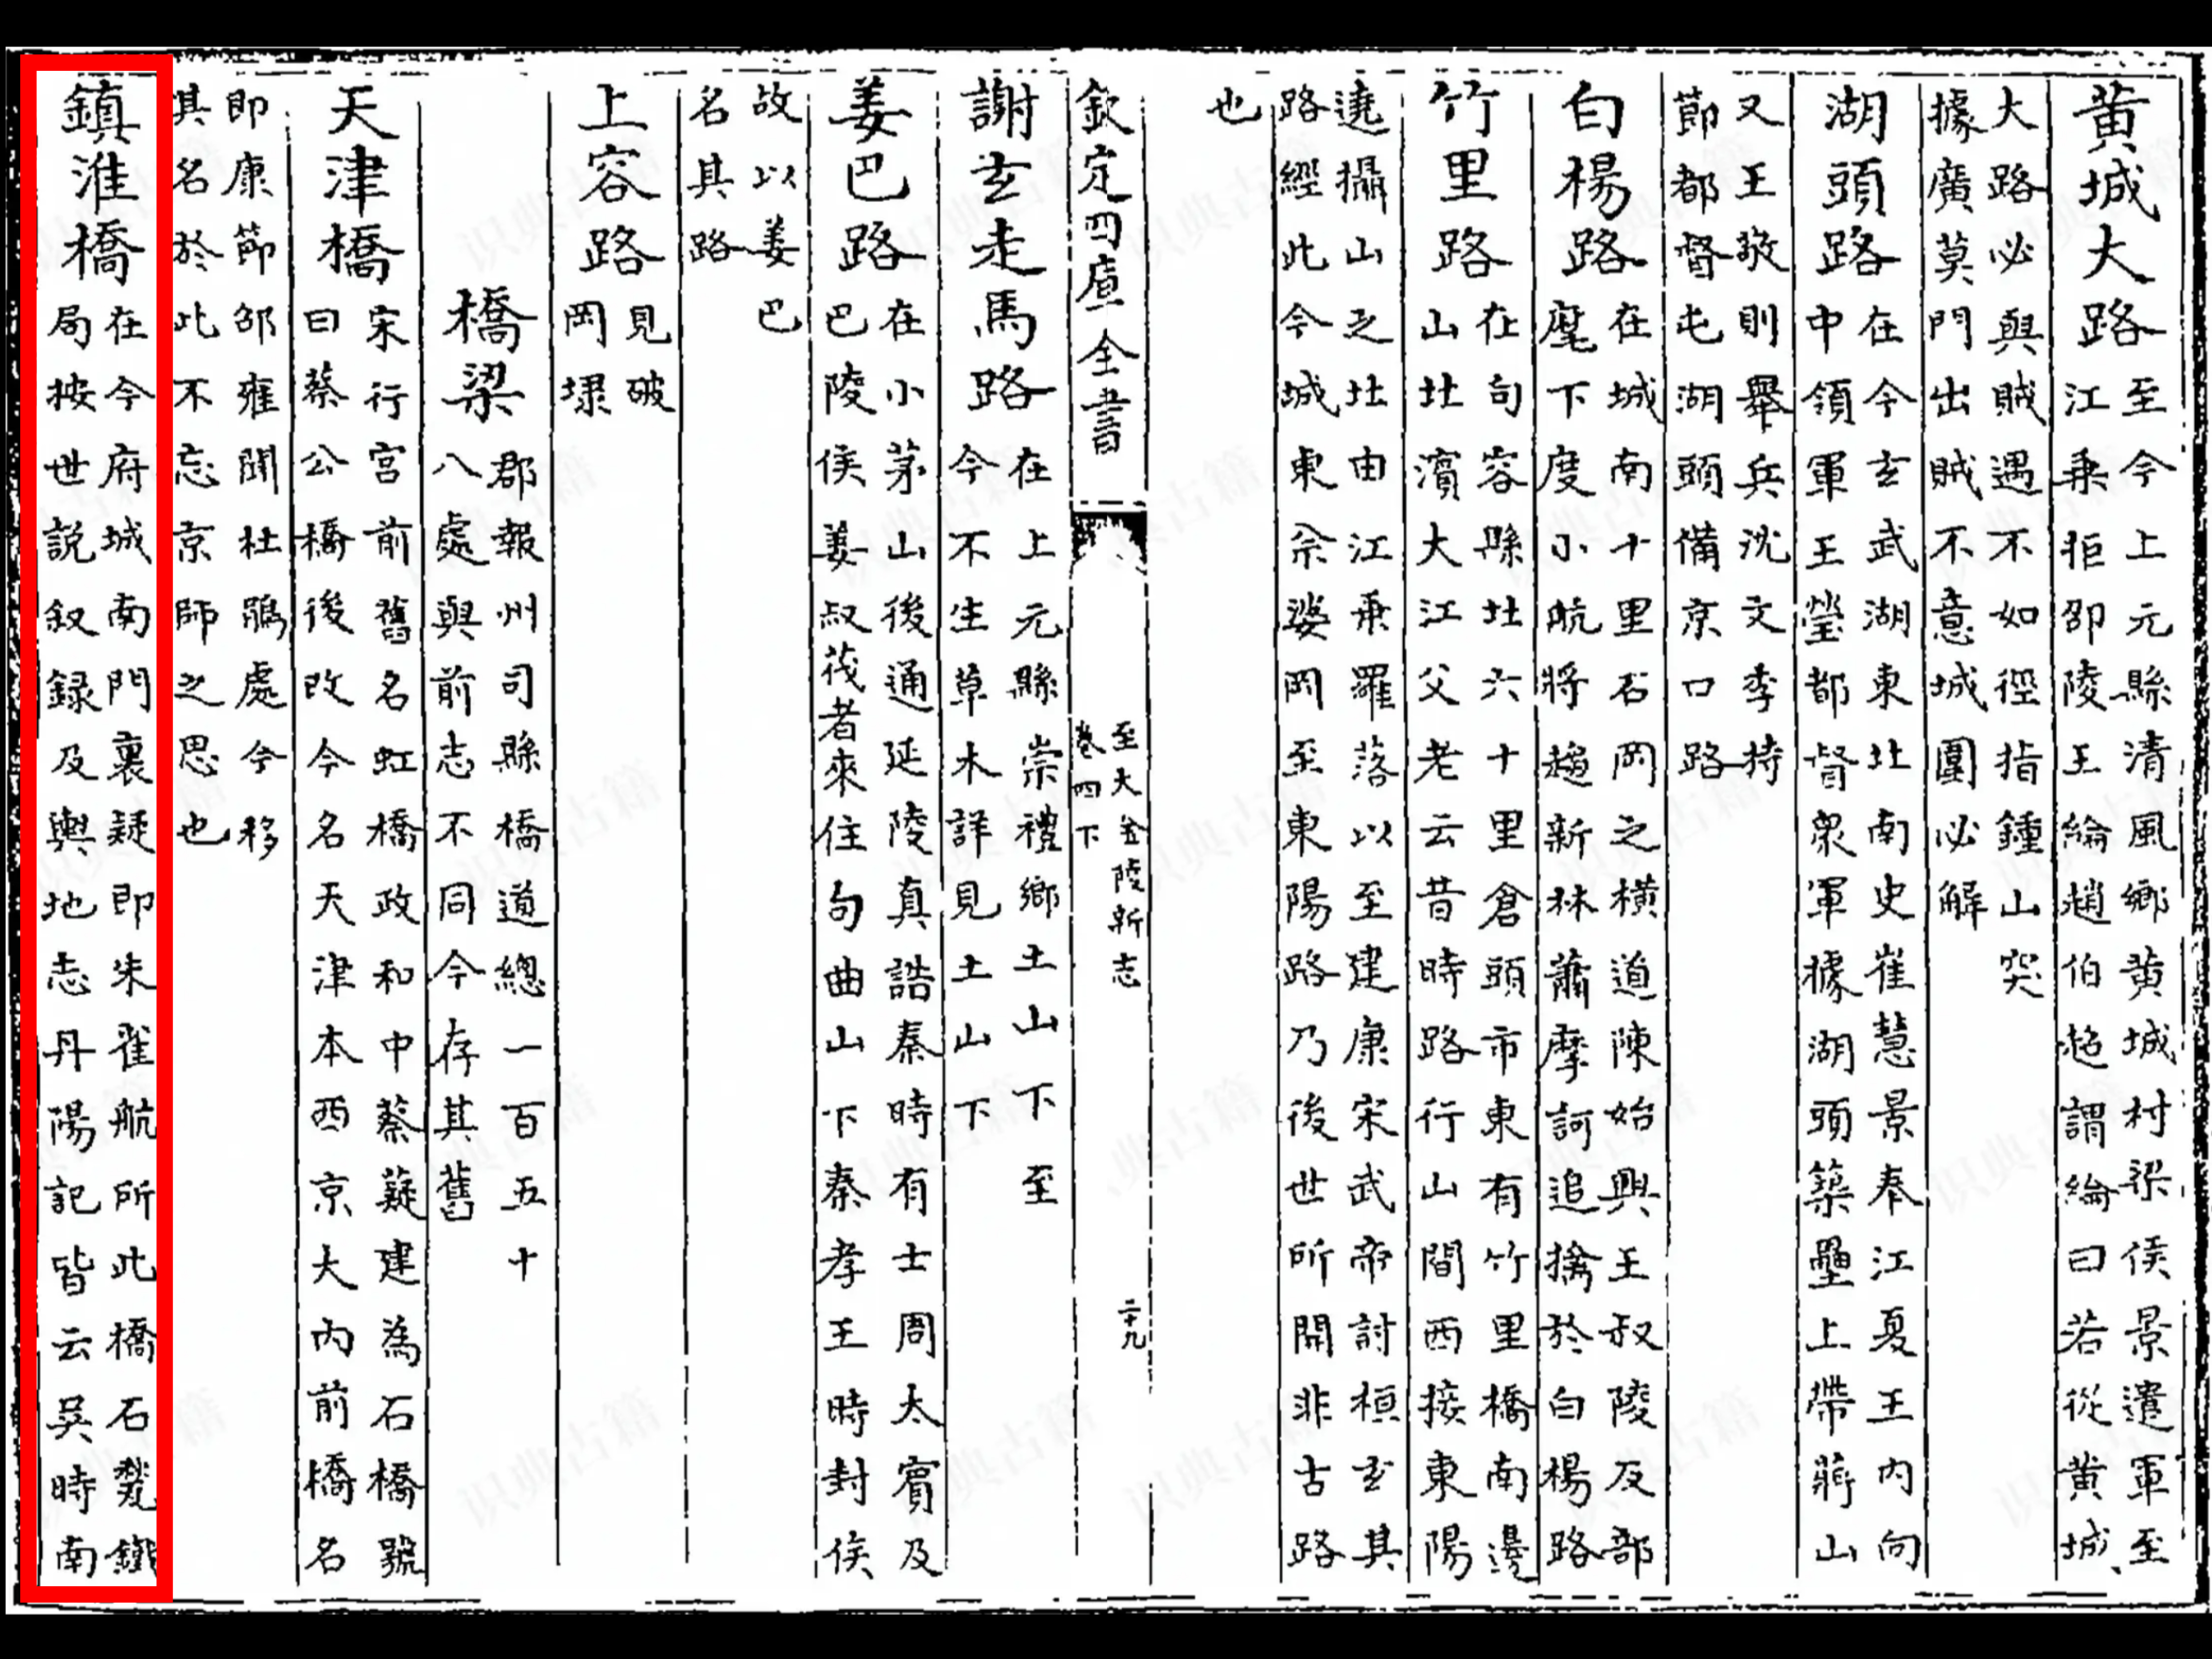 黄城大路 至今上元縣清風鄉黄城村梁侯景遣軍至
江乗拒邵陵王綸趙伯超謂綸曰若從黄城
大路必與賊遇不如徑指鍾山突
據廣莫門出賊不意城圍必解
湖頭路 在今玄武湖東北南史崔慧景奉江夏王内向
中領軍王瑩都督衆軍據湖頭築壘上帶蔣山
又王敬則舉兵沈文季持
節都督屯湖頭備京口路
白楊路 在城南十里石岡之横道陳始興王叔陵反部
麾下度小航將趨新林蕭摩訶追擒於白楊路
竹里路 在句容縣北六十里倉頭市東有竹里橋南邊
山北濱大江父老云昔時路行山間西接東陽
遶攝山之北由江乗羅落以至建康宋武帝討桓玄其
路經此今城東佘婆岡至東陽路乃後世所開非古路
也
欽定四庫全書
至大金陵新志
卷四下
二十九
謝玄走馬路 在上元縣崇禮鄉土山下至
今不生草木詳見土山下
姜巴路 在小茅山後通延陵真誥秦時有士周太賓及
巴陵侯姜叔茂者來住句曲山下秦孝王時封侯
故以姜巴
名其路
上容路 見破
岡埭
橋梁 郡報州司縣橋道總一百五十
八處與前志不同今存其舊
天津橋 宋行宫前舊名虹橋政和中蔡薿建為石橋號
曰蔡公橋後改今名天津本西京大内前橋名
即康節邵雍聞杜鵑處今移
其名於此不忘京師之思也
鎮淮橋 在今府城南門裏疑即朱雀航所此橋石甃鐵
局按世說叙録及輿地志丹陽記皆云吳時南